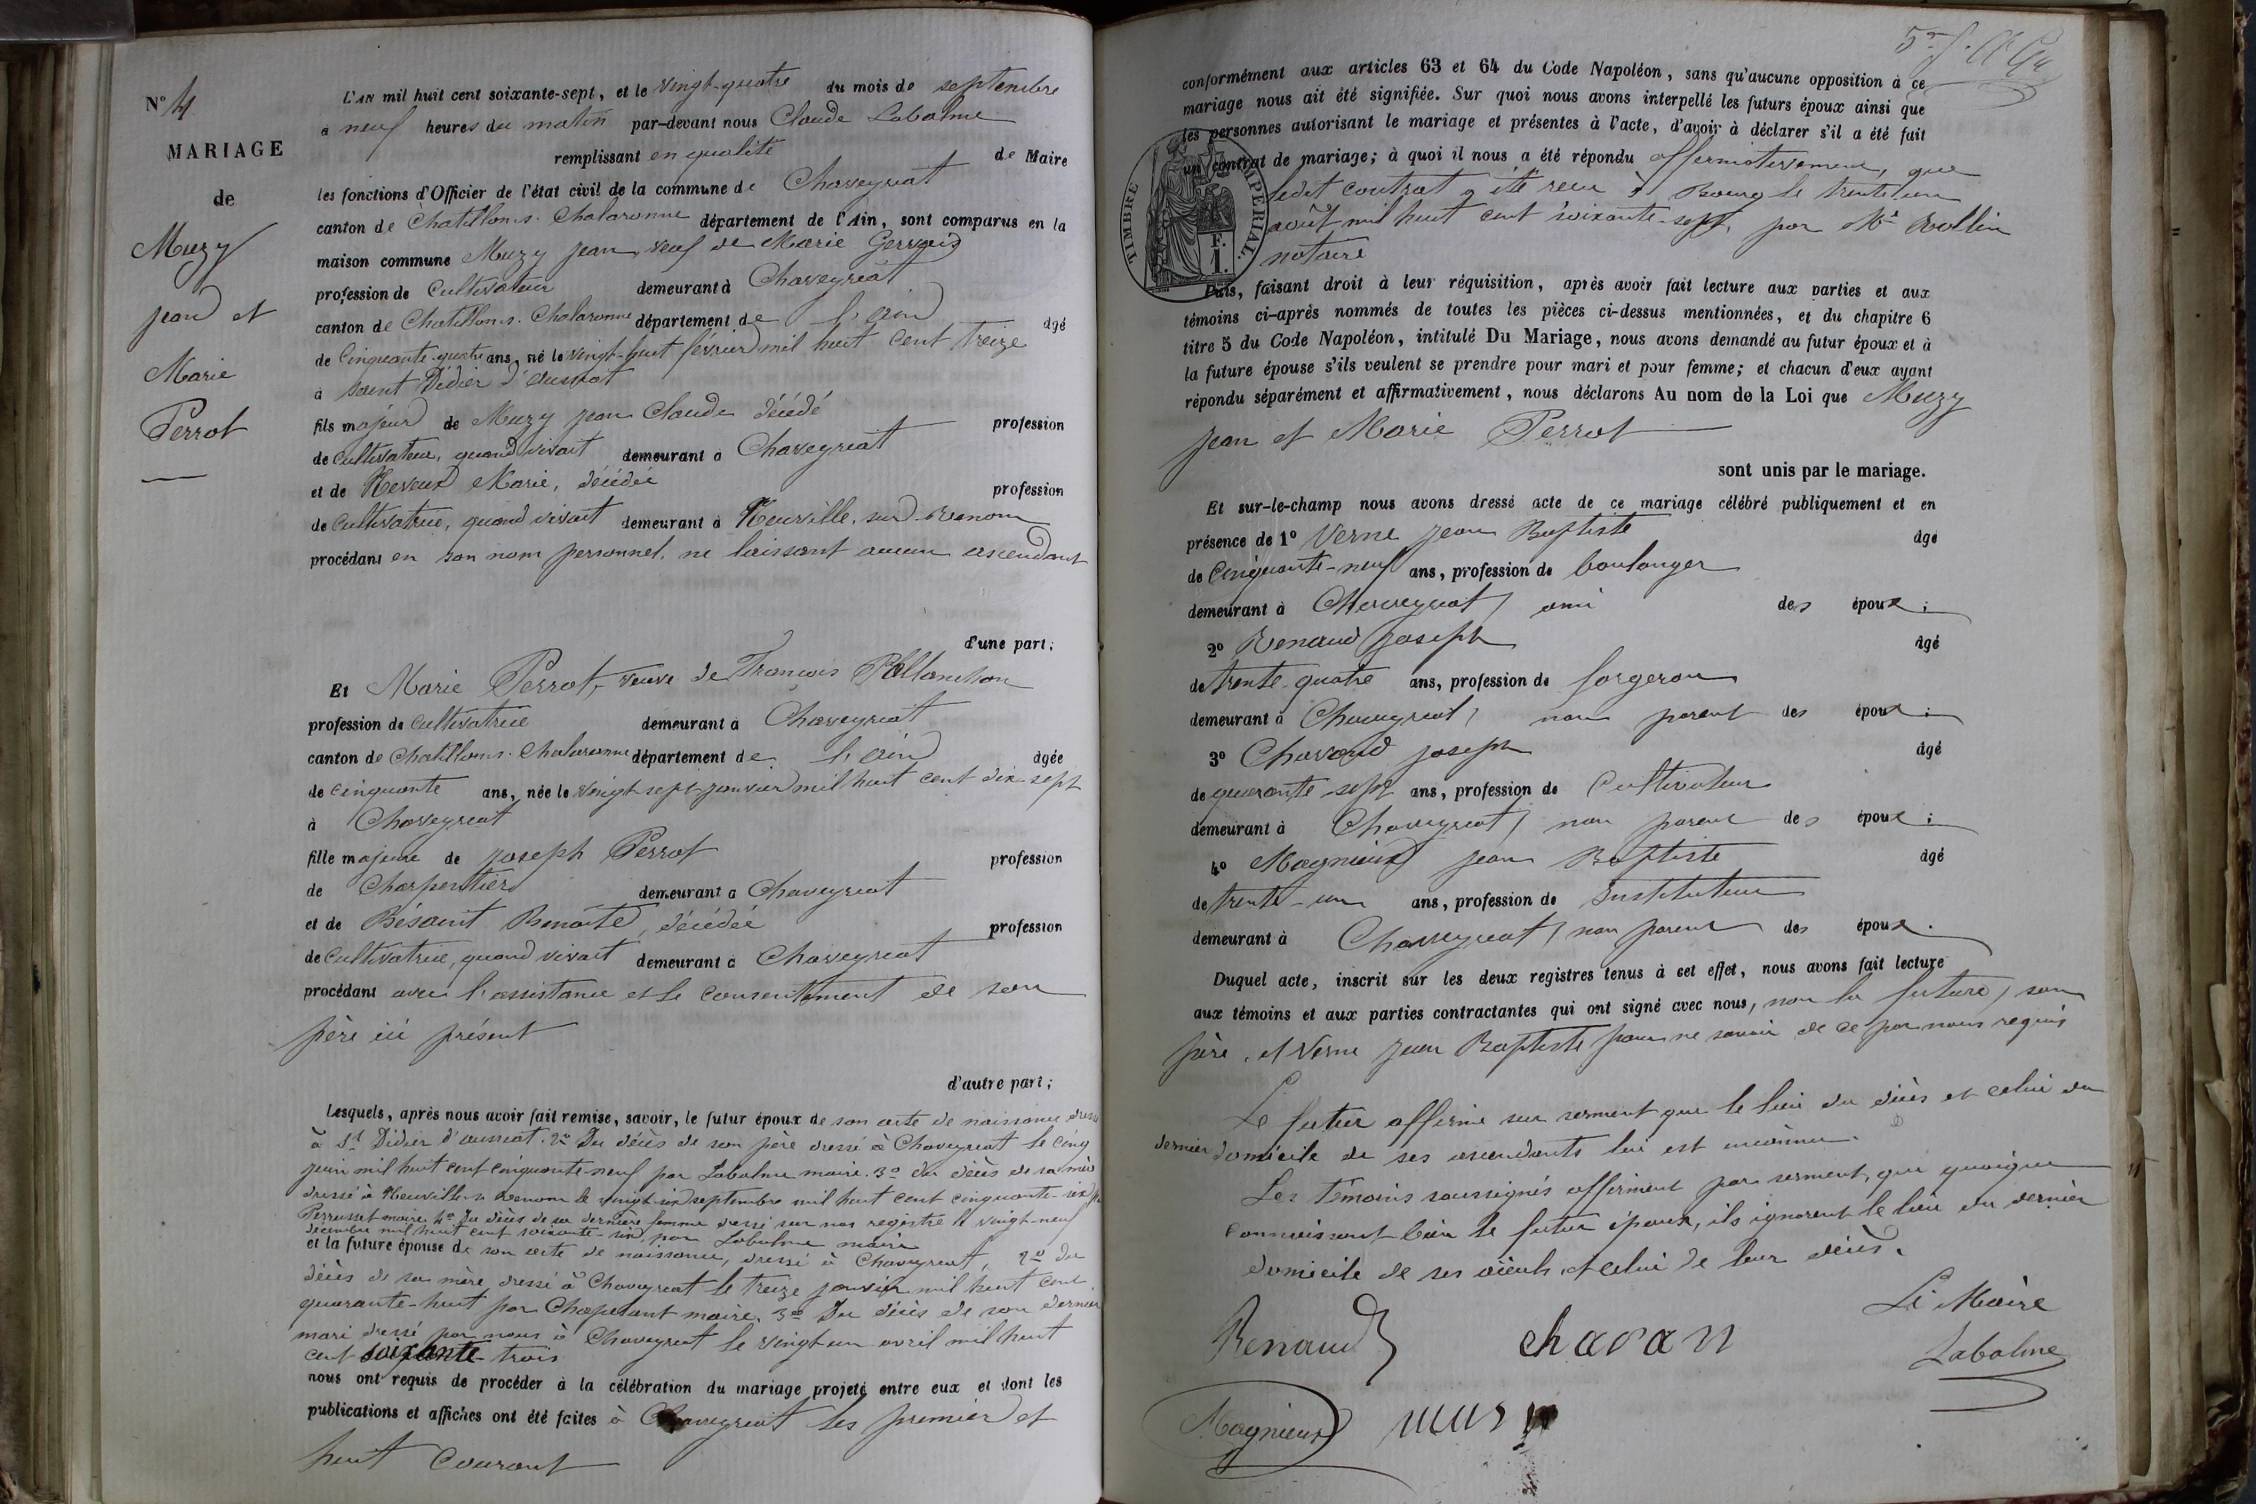 N° 4
MARIAGE
de
Muzy
jean et
Marie
Perrot
L'AN mil huit cent soixante-sept, et le vingt-quatre du mois de septembre
a neuf heures du matin par-devant nous Claude Labalme
remplissant en qualité de Maire
les fonctions d'Officier de l'état civil de la commune de Chaveyriat
canton de Chatillon s. Chalaronne département de l'Ain, sont comparus en la
maison commune Muzy jean, veuf de Marie Gervais
profession de Cultivateur demeurant à Chaveyriat
canton de Chatillon s. Chalaronne département de l'ain âgé
de Cinquante-quatre ans, né le vingt-huit février mil huit cent treize
à saint Didier d'aussiat
fils majeur de Muzy jean Claude décédé profession
de Cultivateur, quand vivait demeurant à Chaveyriat
et de Neveux Marie, décédée profession
de Cultivatrice, quand vivait demeurant à Neuville sur Renom
procédant en son nom personnel, ne laissant aucun ascendant
d'une part;
Et Marie Perrot, veuve de François Pallanchon
profession de Cultivatrice demeurant à Chaveyriat
canton de Chatillon s. Chalaronne département de l'ain âgée
de cinquante ans, née le vingt-sept janvier mil huit cent dix-sept
à Chaveyriat
fille majeure de joseph Perrot profession
de Charpentier demeurant à Chaveyriat
et de Bésaint Benoîte, décédée profession
de Cultivatrice, quand vivait demeurant à Chaveyriat
procédant avec l'assistance et le consentement de son
père ici présent
d'autre part;
Lesquels, après nous avoir fait remise, savoir, le futur époux de son acte de naissance dressé
à St Didier d'aussiat. 2° Du décès de son père dressé à Chaveyriat le cinq
juin mil huit cent cinquante-neuf par Labalme maire. 3° du décès de sa mère
dressé à Neuville s. Renom le vingt-six septembre mil huit cent cinquante-six
Perrusset maire 4° Du décès de sa dernière femme dressé sur nos registre le vingt-neuf
décembre mil huit cent soixante-six, par Labalme maire
et la future épouse de son acte de naissance, dressé à Chaveyriat, 2° du
décès de sa mère dressé à Chaveyriat le treize janvier mil huit cent
quarante-huit par Chapelant maire. 3° Du décès de son dernier
mari dressé par nous à Chaveyriat le vingt un avril mil huit
cent soixante-trois
nous ont requis de procéder à la célébration du mariage projeté entre eux et dont les
publications et affiches ont été faites à Chaveyriat les premier et
huit Courant
conformément aux articles 63 et 64 du Code Napoléon, sans qu'aucune opposition à ce
mariage nous ait été signifiée. Sur quoi nous avons interpellé les futurs époux ainsi que
les personnes autorisant le mariage et présentes à l'acte, d'avoir à déclarer s'il a été fait
un contrat de mariage; à quoi il nous a été répondu affirmativement, que
ledit contrat a été recu à Bourg le trente un
août mil huit cent soixante-sept, par Me Rollin
notaire
TIMBRE IMPERIAL.
F.
1.
Puis, faisant droit à leur réquisition, après avoir fait lecture aux parties et aux
témoins ci-après nommés de toutes les pièces ci-dessus mentionnées, et du chapitre 6
titre 5 du Code Napoléon, intitulé Du Mariage, nous avons demandé au futur époux et à
la future épouse s'ils veulent se prendre pour mari et pour femme; et chacun d'eux ayant
répondu séparément et affirmativement, nous déclarons Au nom de la Loi que Muzy
jean et Marie Perrot
sont unis par le mariage.
Et sur-le-champ nous avons dressé acte de ce mariage célébré publiquement et en
présence de 1° Verne jean Baptiste âgé
de Cinquante-neuf ans, profession de boulanger
demeurant à Chaveyriat, ami des époux;
2° Renaud joseph âgé
de trente-quatre ans, profession de forgeron
demeurant à Chaveyriat, non parent des époux;
3° Chavand joseph âgé
de quarante sept ans, profession de Cultivateur
demeurant à Chaveyriat, non parent des époux;
4° Magnieux jean Baptiste âgé
de trente-un ans, profession de Instituteur
demeurant à Chaveyriat, non parent des époux.
Duquel acte, inscrit sur les deux registres tenus à cet effet, nous avons fait lecture
aux témoins et aux parties contractantes qui ont signé avec nous, non la future, son
père, et Verne jean Baptiste pour ne savoir de ce par nous requis
Le futur affirme sur serment que le lieu du décès et celui du
dernier domicile de ses ascendants lui est inconnu.
Les témoins soussignés affirment par serment, que quoique
connaissant bien le futur époux, ils ignorent le lieu du dernier
domicile de ses aïeuls, et celui de leur décès.
Le Maire
Renaud chavan Labalme
Magnieux muzy